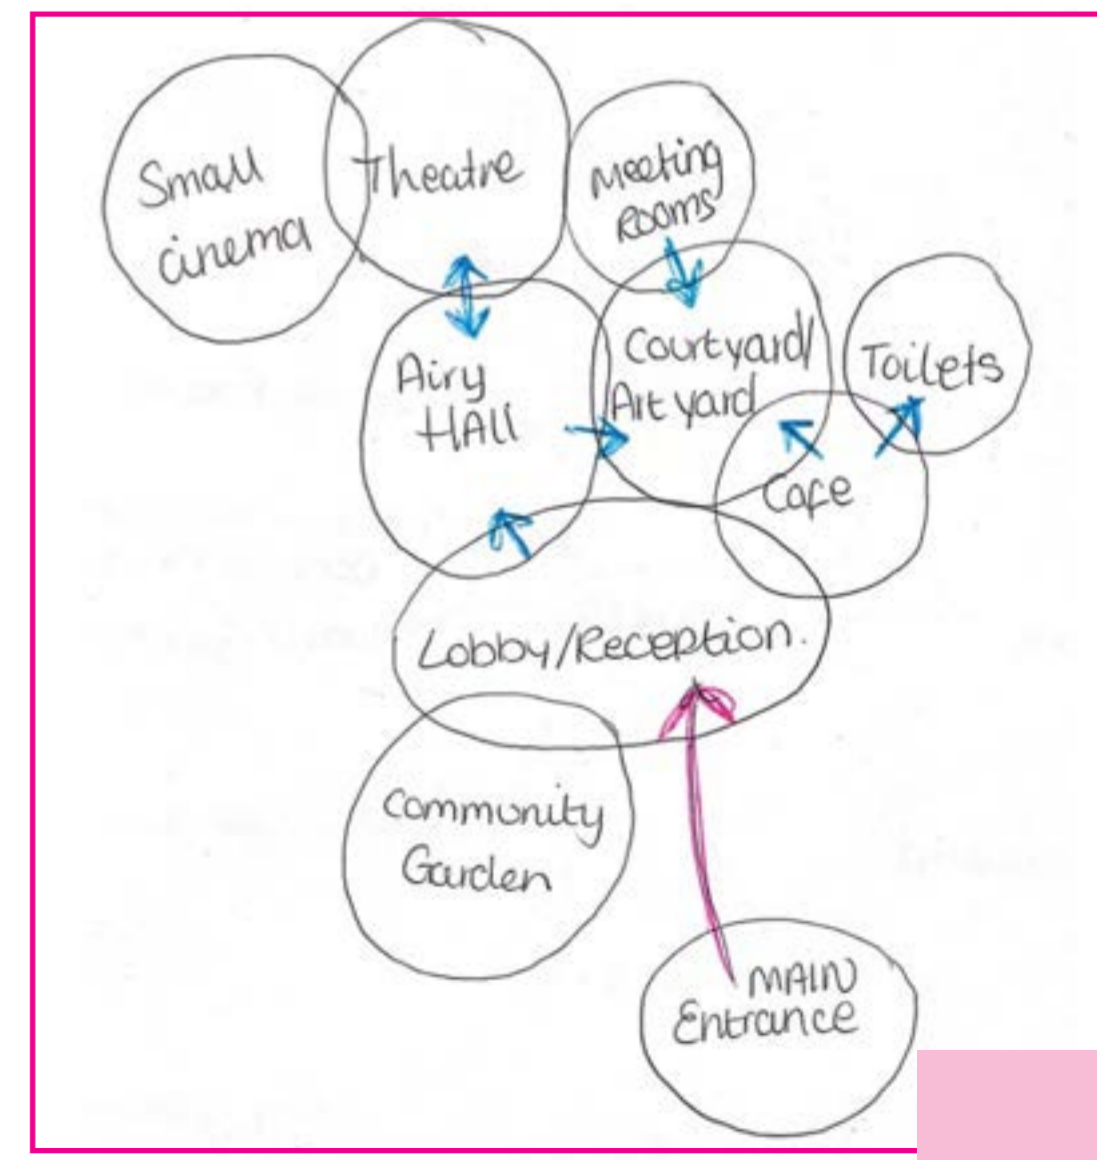 Small
cinema
Theatre
Meeting
Rooms
Courtyard/
Art yard
Toilets
Airy
HAll
Cafe
Lobby/Reception.
Community
Garden
MAIN
Entrance